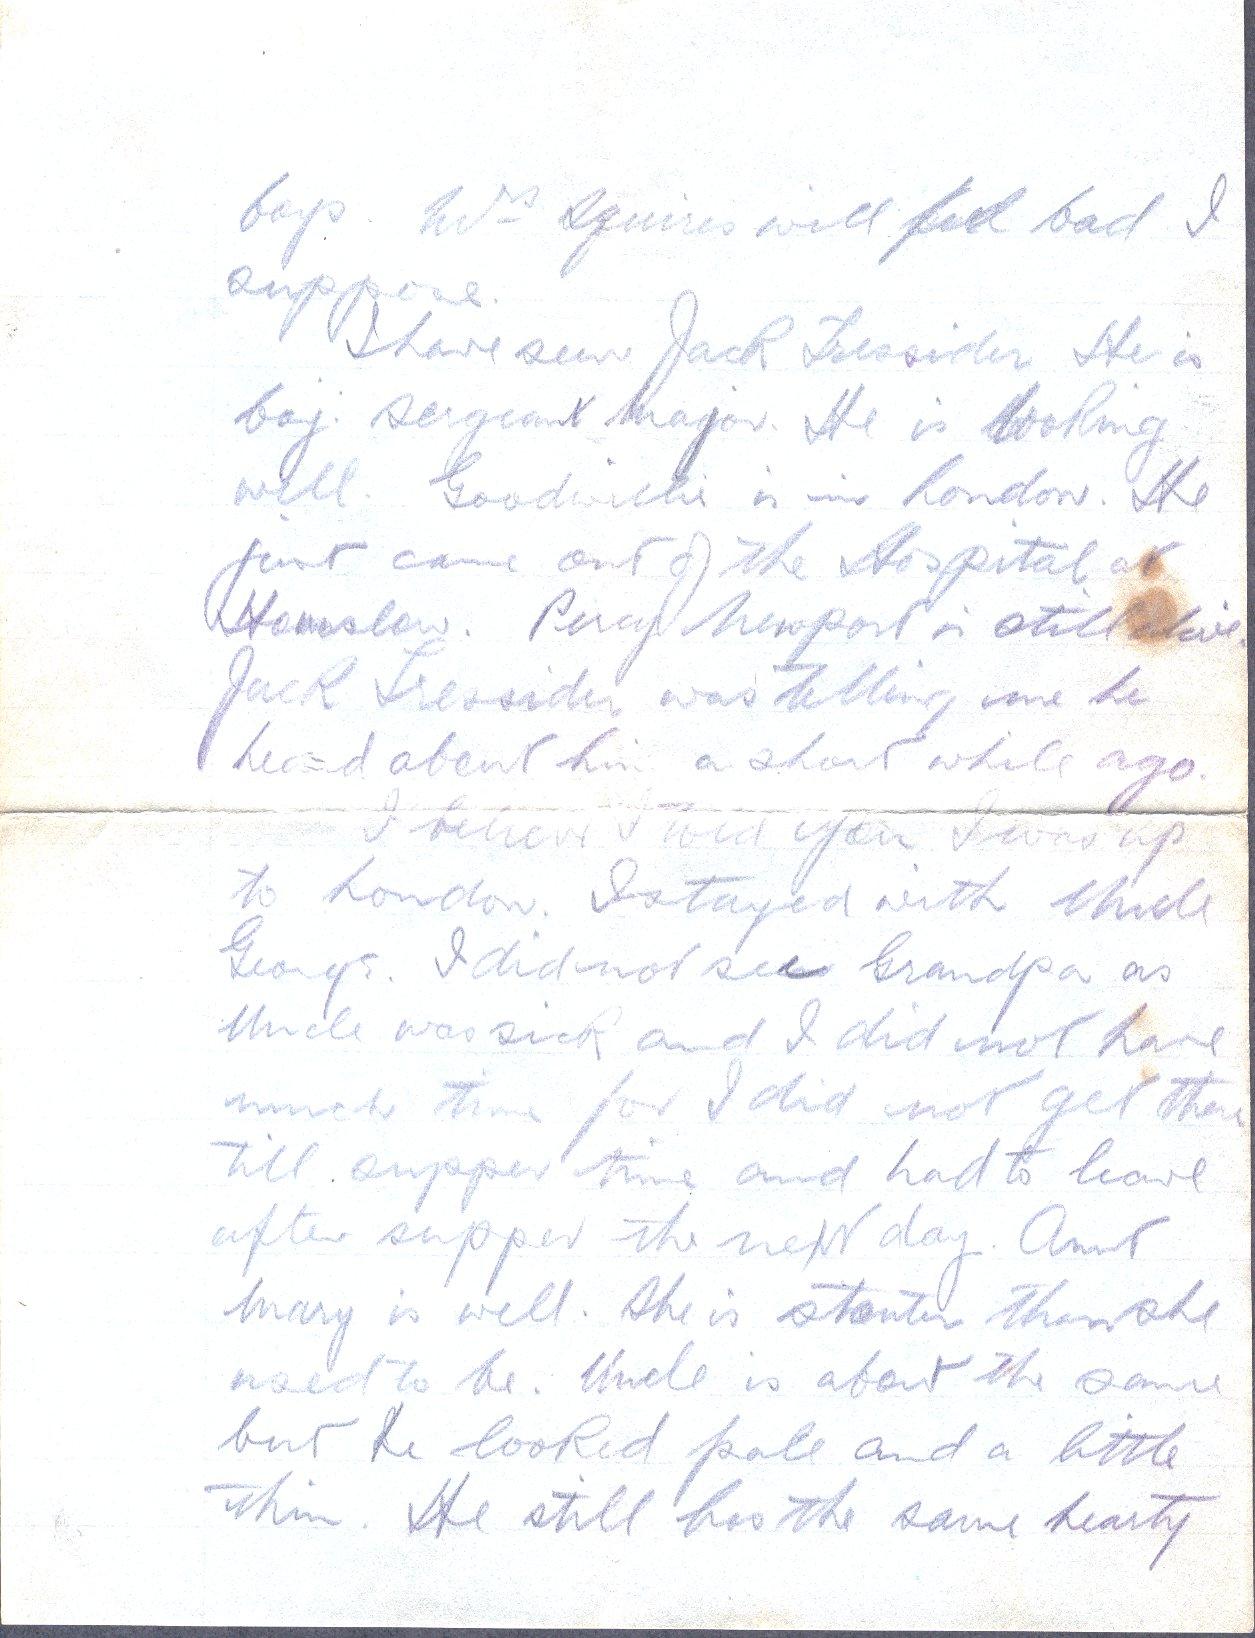 boys. Mrs Squires will feel bad I
suppose.
I have seen Jack Tressider He is
boy. sergeant major. He is looking
well. Goodwillie is in London. He
just came out of the Hospital at
Hounslow. Percy Newport is still alive.
Jack Tressider was telling me he
heard about him a short while ago.
I believe I told you I was up
to London. I stayed with Uncle
George. I did not see Grandpa as
Uncle was sick and I did not have
much time for I did not get there
till supper time and had to leave
after supper the next day. Aunt
Mary is well. She is stouter than she
used to be. Uncle is about the same
but he looked pale and a little
thin. He still has the same hearty